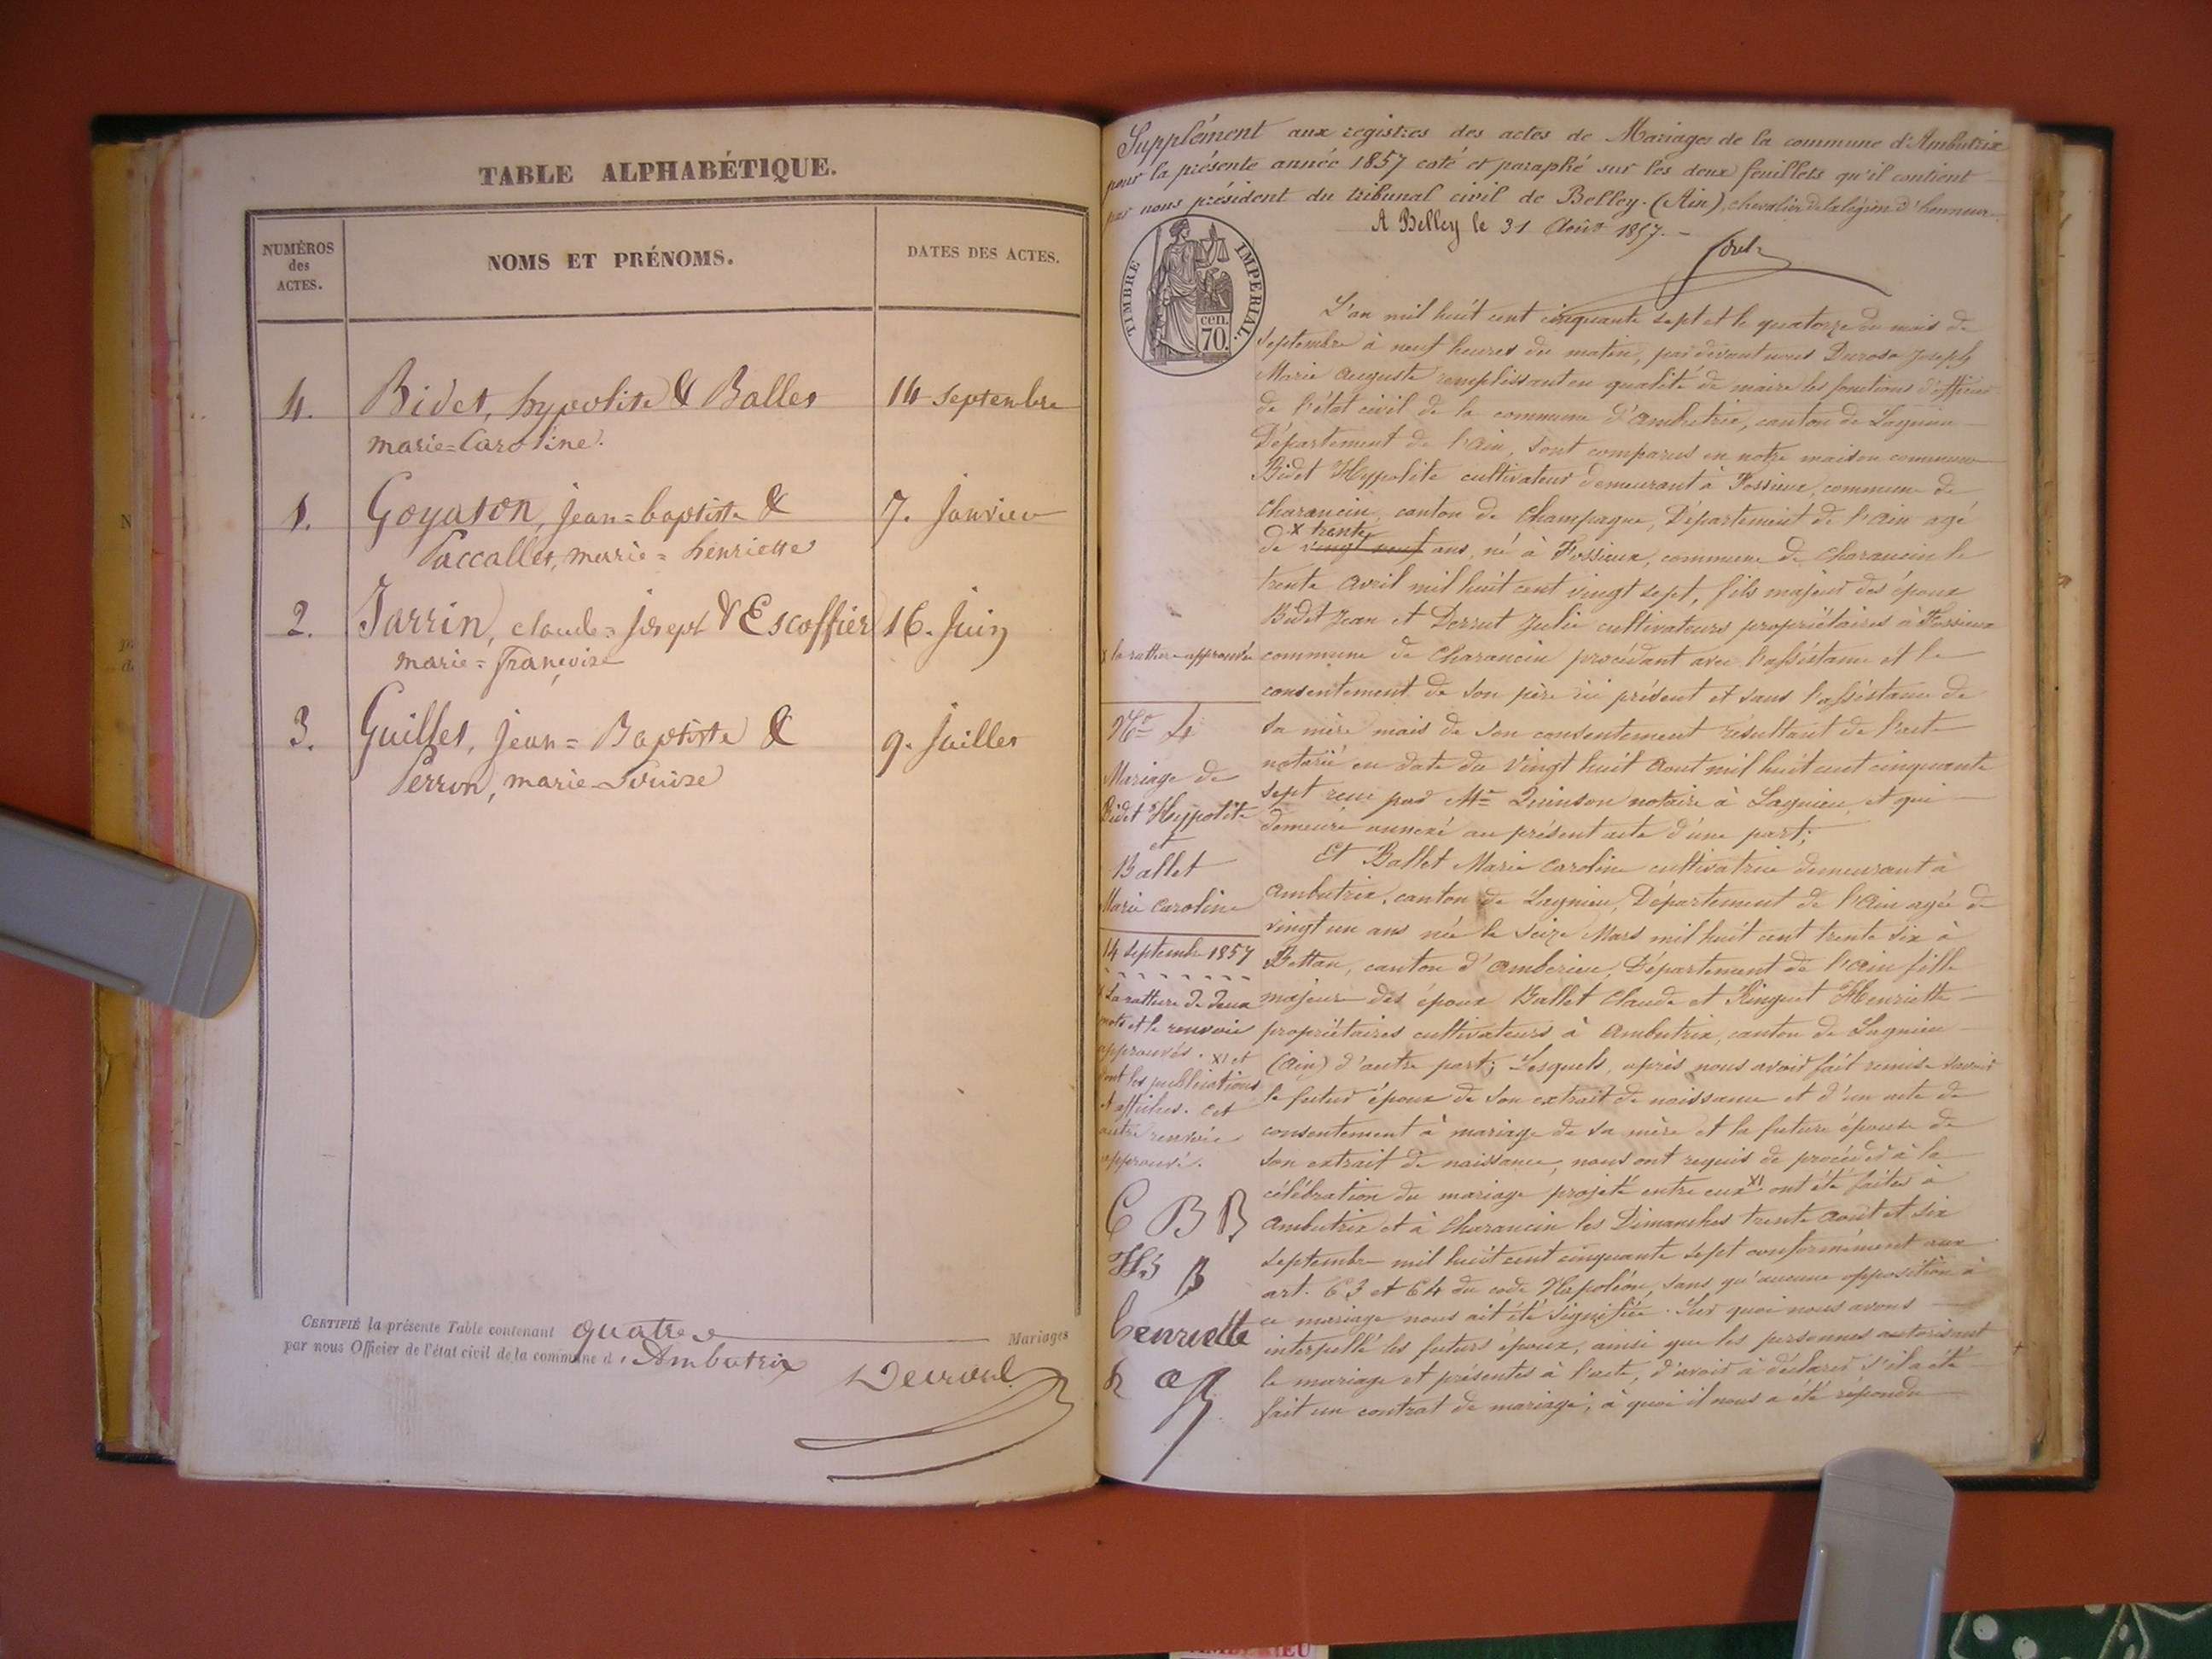 TABLE ALPHABÉTIQUE.
NUMÉROS
des
ACTES.
NOMS ET PRÉNOMS.
DATES DES ACTES.
4. Bidet, hypolite & Ballet 14 septembre
marie=Caroline.
1. Goyaton, jean=baptiste & 7. Janvier
Paccallet, marie=henriette
2. Jarrin, claude=joseph & Escoffier 16. Juin
marie=françoise
3. Guillet, jean=Baptiste & 9. Juillet
Perron, marie-Louise
CERTIFIÉ la présente Table contenant quatre Mariages
par nous Officier de l'état civil de la commune d'Ambutrix
Supplément aux registres des actes de Mariages de la commune d'Ambutrix
pour la présente année 1857 coté et paraphé sur les deux feuillets qu'il contient
par nous président du tribunal civil de Belley. (Ain), chevalier de la légion d'honneur.
A Belley le 31 Août 1857.
TIMBRE IMPERIAL.
70. cen.
L'an mil huit cent cinquante sept et le quatorze du mois de
septembre à neuf heures du matin, par devant nous Joseph
Marie Auguste remplissant en qualité de maire les fonctions d'officier
de l'état civil de la commune d'Ambutrix, canton de Lagnieu
Département de l'Ain, sont comparus en notre maison commune
Bidet Hypolite cultivateur demeurant à Fossieux, commune de
Charancin, canton de Champagne, Département de l'Ain agé
x trente
de vingt neuf ans, né à Fossieux, commune de Charancin le
trente Avril mil huit cent vingt sept, fils majeur des époux
Bidet Jean et Julie cultivateurs propriétaires à Fossieux
commune de Charancin procédant avec l'assistance et le
consentement de son père ici présent et sans l'assistance de
sa mère mais de son consentement résultant de l'acte
notarié en date du vingt huit Aout mil huit cent cinquante
sept reçu par Me Quinson notaire à Lagnieu, et qui
demeure annexé au présent acte d'une part;
Et Ballet Marie Caroline cultivatrice demeurant à
Ambutrix, canton de Lagnieu, Département de l'Ain agée de
vingt un ans née le seize Mars mil huit cent trente six à
Bettan, canton d'Amberieu, Département de l'Ain fille
majeure des époux Ballet Claude et Henriette
propriétaires cultivateurs à Ambutrix, canton de Lagnieu
(Ain) d'autre part; Lesquels, après nous avoir fait remise savoir
le futur époux de son extrait de naissance et d'un acte de
consentement à mariage de sa mère et la future épouse de
son extrait de naissance, nous ont requis de procéder à la
célébration du mariage projeté entre eux XI ont été faites à
Ambutrix et à Charancin les Dimanches trente Août et six
septembre mil huit cent cinquante sept conformément aux
art. 63 et 64 du code Napoléon, sans qu'aucune opposition à
ce mariage nous ait été signifiée. Sur quoi nous avons
interpellé les futurs époux, ainsi que les personnes autorisant
le mariage et présentes à l'acte, d'avoir à déclarer s'il a été
fait un contrat de mariage; à quoi il nous a été répondu
x la rature approuvée
No 4
Mariage de
Bidet Hypolite
et
Ballet
Marie Caroline
14 septembre 1857
x La rature de deux
mots et le renvoie
approuvés. XI et
dont les publications
et affiches. Cet
autre renvoie
approuvé.
C B B
H B
henriette